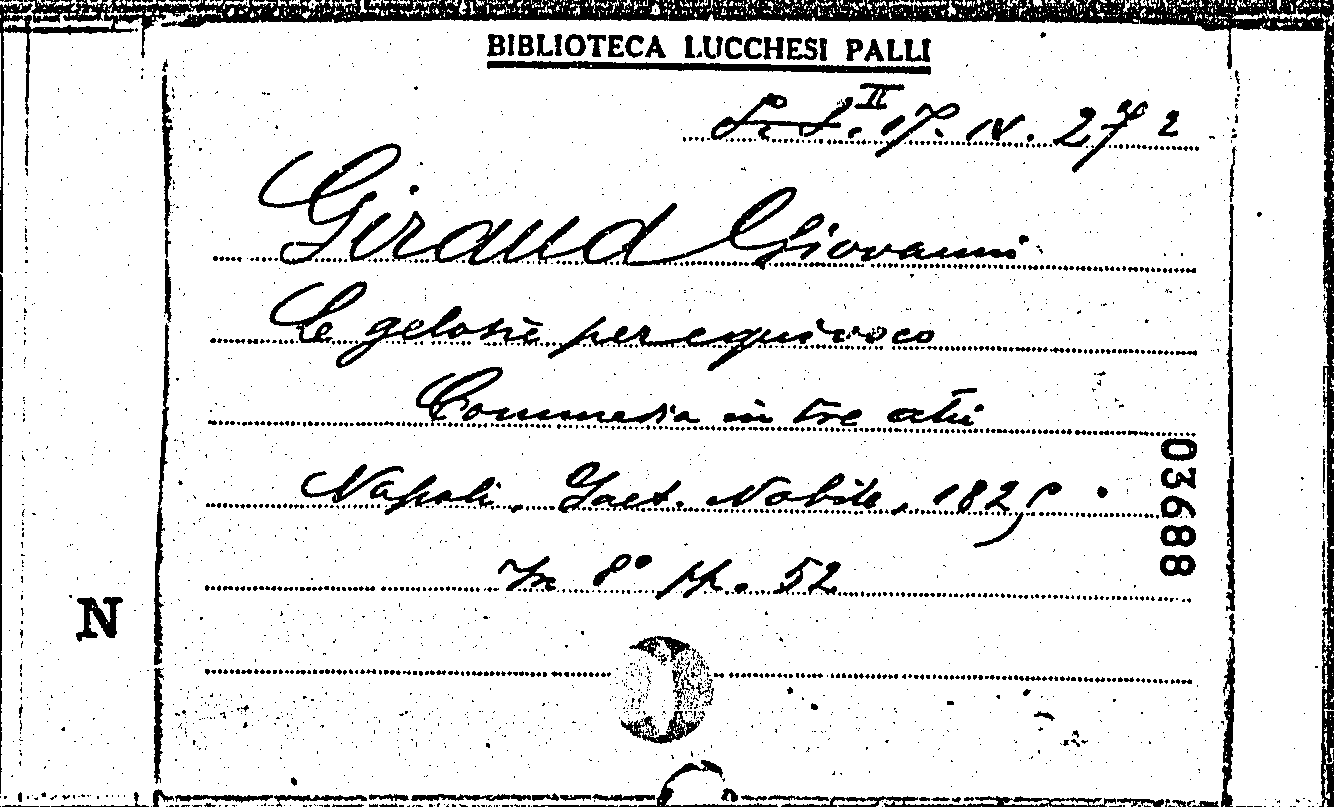 BIBLIOTECA LUCCHESI PALLI
II
17. IV. 27 2
Giraud Giovanni
Le gelosie per equivoco
Commedia in tre atti
Napoli, Gaet. Nobile, 1825.
In 8° pp. 52
03688
N